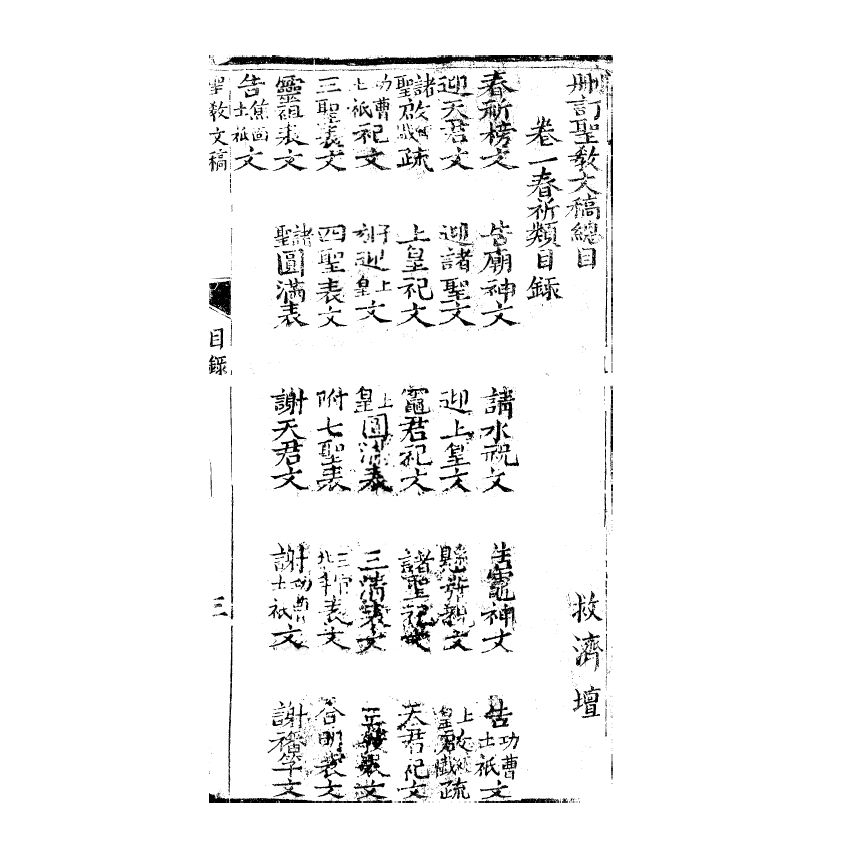 刪訂聖教文稿總目
救濟壇
卷一春祈類目錄
春祈榜文 告廟神文 請水祝文 告竈神文 告功曹土祇文
迎天君文 迎諸聖文 迎上皇文 懸旛祝文 上皇啟懺疏
諸聖啟懺疏 上皇祀文 竈君祀文 諸聖祀文 天君祀文
功曹土祇祀文 子刻迎上皇文 上皇圓滿表 三清表文
三聖表文 四聖表文 附七聖表 三官北辛表文 合明表文
靈祖表文 諸聖圓滿表 謝天君文 謝功曹土祇文 謝旛竿文
告焦面土祇文
聖教文稿 目錄 三